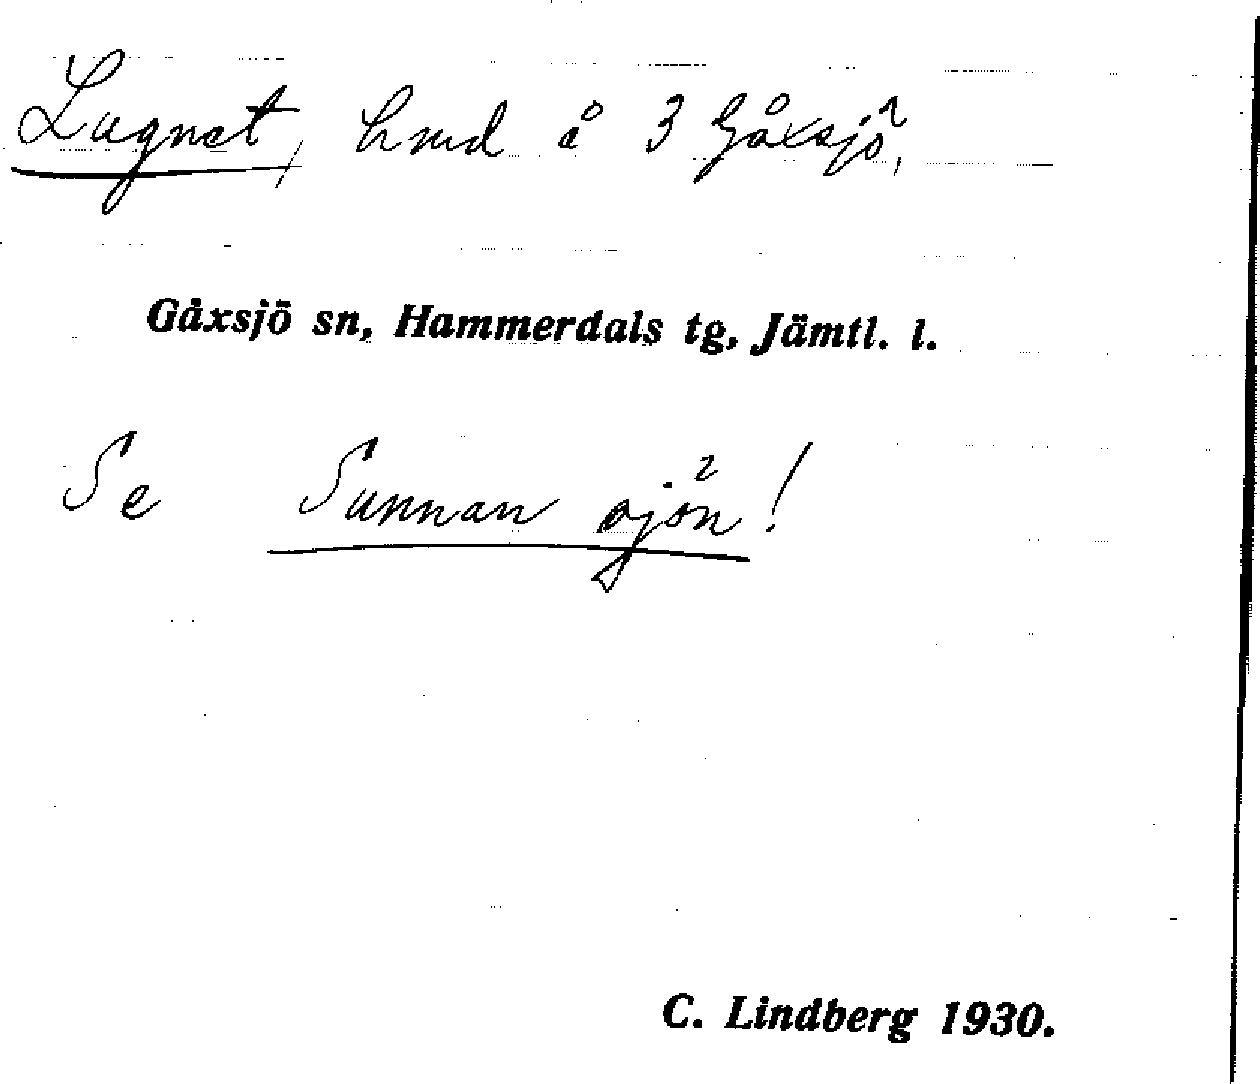 Lugnet, hmd å 3 Gåxsjö,
Gåxsjö sn, Hammerdals tg, Jämtl. l.
Se Sunnan sjön!
C. Lindberg 1930.